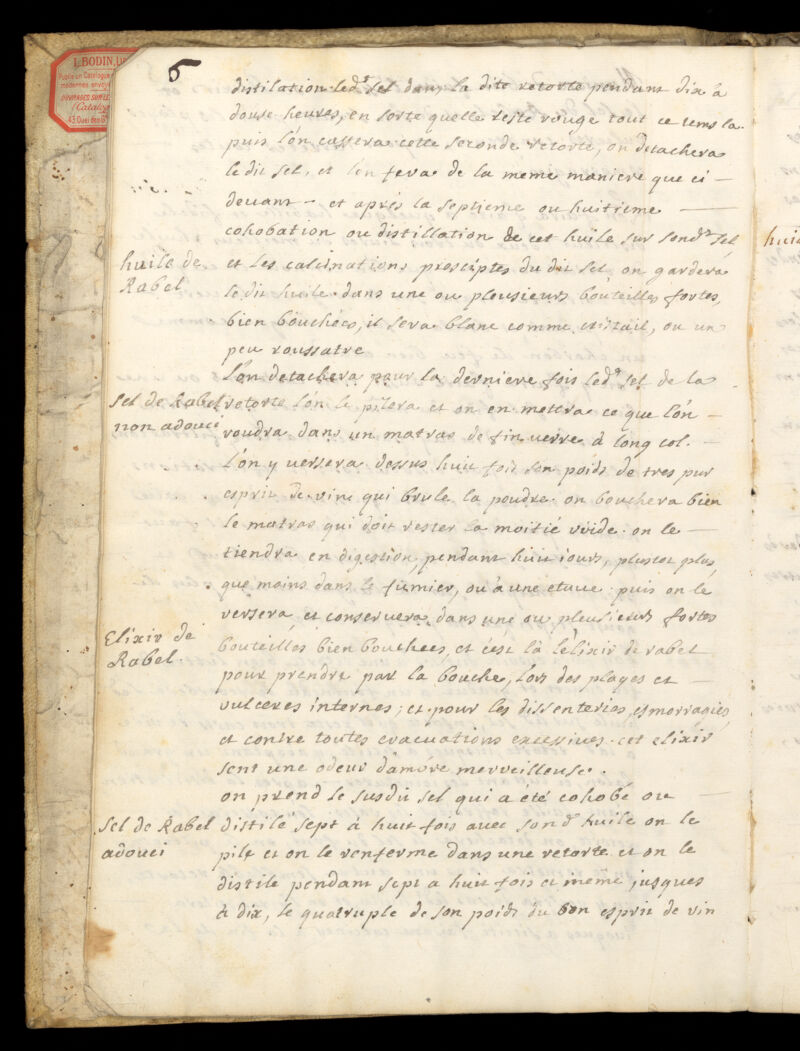 5
L. BODIN, LI
distilation led.t sel dans la dite retorte pendant dix à
douse heures, en sorte quelle reste rouge tout ce tems la.
puis l'on cassera cette seconde retorte, on detachera
le dit sel, et l'on fera de la meme maniere que ci —
devant - et aprés la septieme ou huitrieme —
cohobation ou distillation de cet huile sur sond.t sel
huile de
Rabel
et les calcinations prescriptes du dit sel, on gardera
le dit huile dans une ou pleusieurs bouteilles fortes,
bien bouchées, il sera blanc comme cristail, ou un
peu roussatre
l'on detachera pour la derniere fois led.t sel de la
Sel de Rabel
non adouci
retorte l'on le pilera et on en metera ce que l'on —
voudra dans un matras de fin verre à long col. —
l'on y versera dessus huit fois son poids de tres pur
esprit de vin qui brule la poudre. on bouchera bien
le matras qui doit rester la moitié vuide. on le —
tiendra en digestion, pendant huit jours, plustot plus,
que moins dans le fumier, ou à une etuve. puis on le
versera et conservera dans une ou pleusieurs fortes
Elixir de
Rabel.
bouteilles bien bouchees, et c'est là l'elixir de rabel
pour prendre par la bouche, lors des playes et —
vulceres internes; et pour les dissenteries, esmorragies,
et contre toutes evacuations excessives. cet elixir
sent une odeur d'amore merveilleuse.
on prend le susdit sel qui a été cohobé ou —
Sel de Rabel
adouci
distilé sept à huit fois avec sond.t huile on le
pile et on le renferme dans une retorte et on le
distile pendant sept a huit fois et même jusques
à dix, le quatruple de son poids du bon esprit de vin